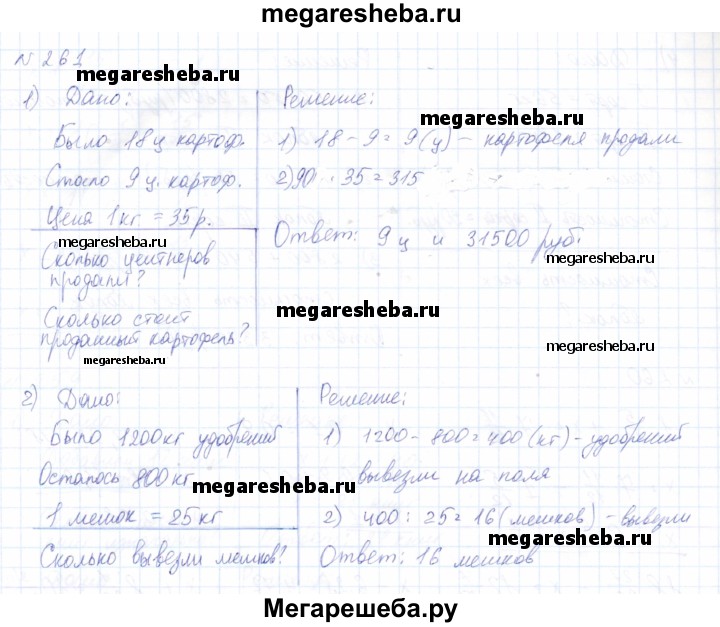 megaresheba.ru
N 261
megaresheba.ru
1) Дано:
Было 18ц картоф.
Стало 9 ц. картоф.
Цена 1кг = 35р.
megaresheba.ru
Сколько центнеров
продали?
Сколько стоит
проданный картофель?
megaresheba.ru
Решение:
megaresheba.ru
1) 18 - 9 = 9 (ц) - картофеля продали
2) 90 · 35 = 315
Ответ: 9 ц и 31500 руб.
megaresheba.ru
megaresheba.ru
megaresheba.ru
2) Дано:
Было 1200кг удобрений
Осталось 800кг
megaresheba.ru
1 мешок = 25кг
Сколько вывезли мешков?
Решение:
1) 1200 - 800 = 400 (кг) - удобрений
вывезли на поля
2) 400 : 25 = 16 (мешков) - вывезли
megaresheba.ru
Ответ: 16 мешков
Мегарешеба.ру